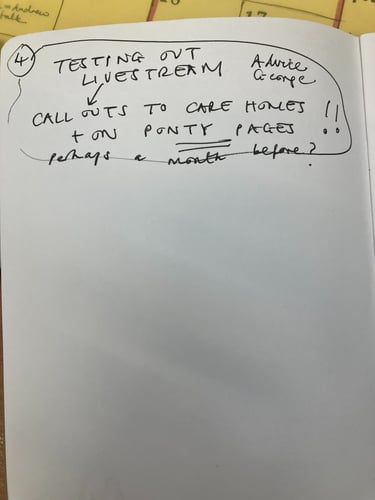 Andrew
talk
17
4 TESTING OUT Advice
LIVESTREAM George
CALL OUTS TO CARE HOMES !!
+ ON PONTY PAGES
perhaps a month before?